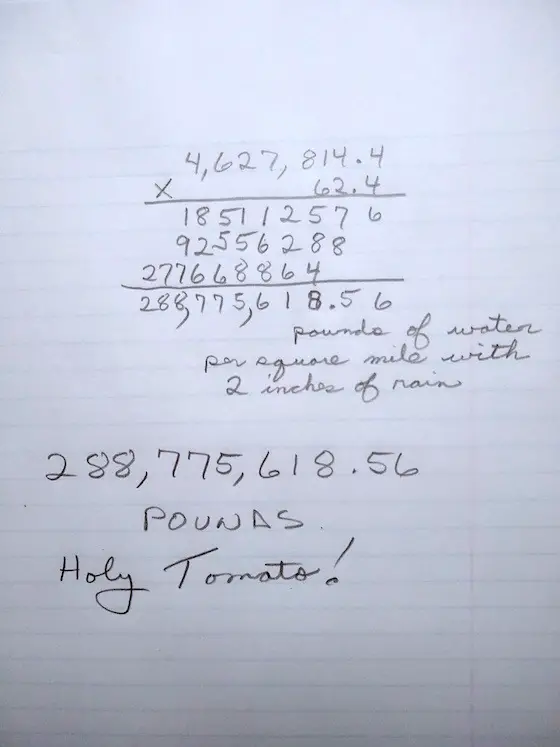 4,627,814.4
x 62.4
185112576
92556288
277668864
288,775,618.56
pounds of water
per square mile with
2 inches of rain
288,775,618.56
POUNDS.
Holy Tomato!